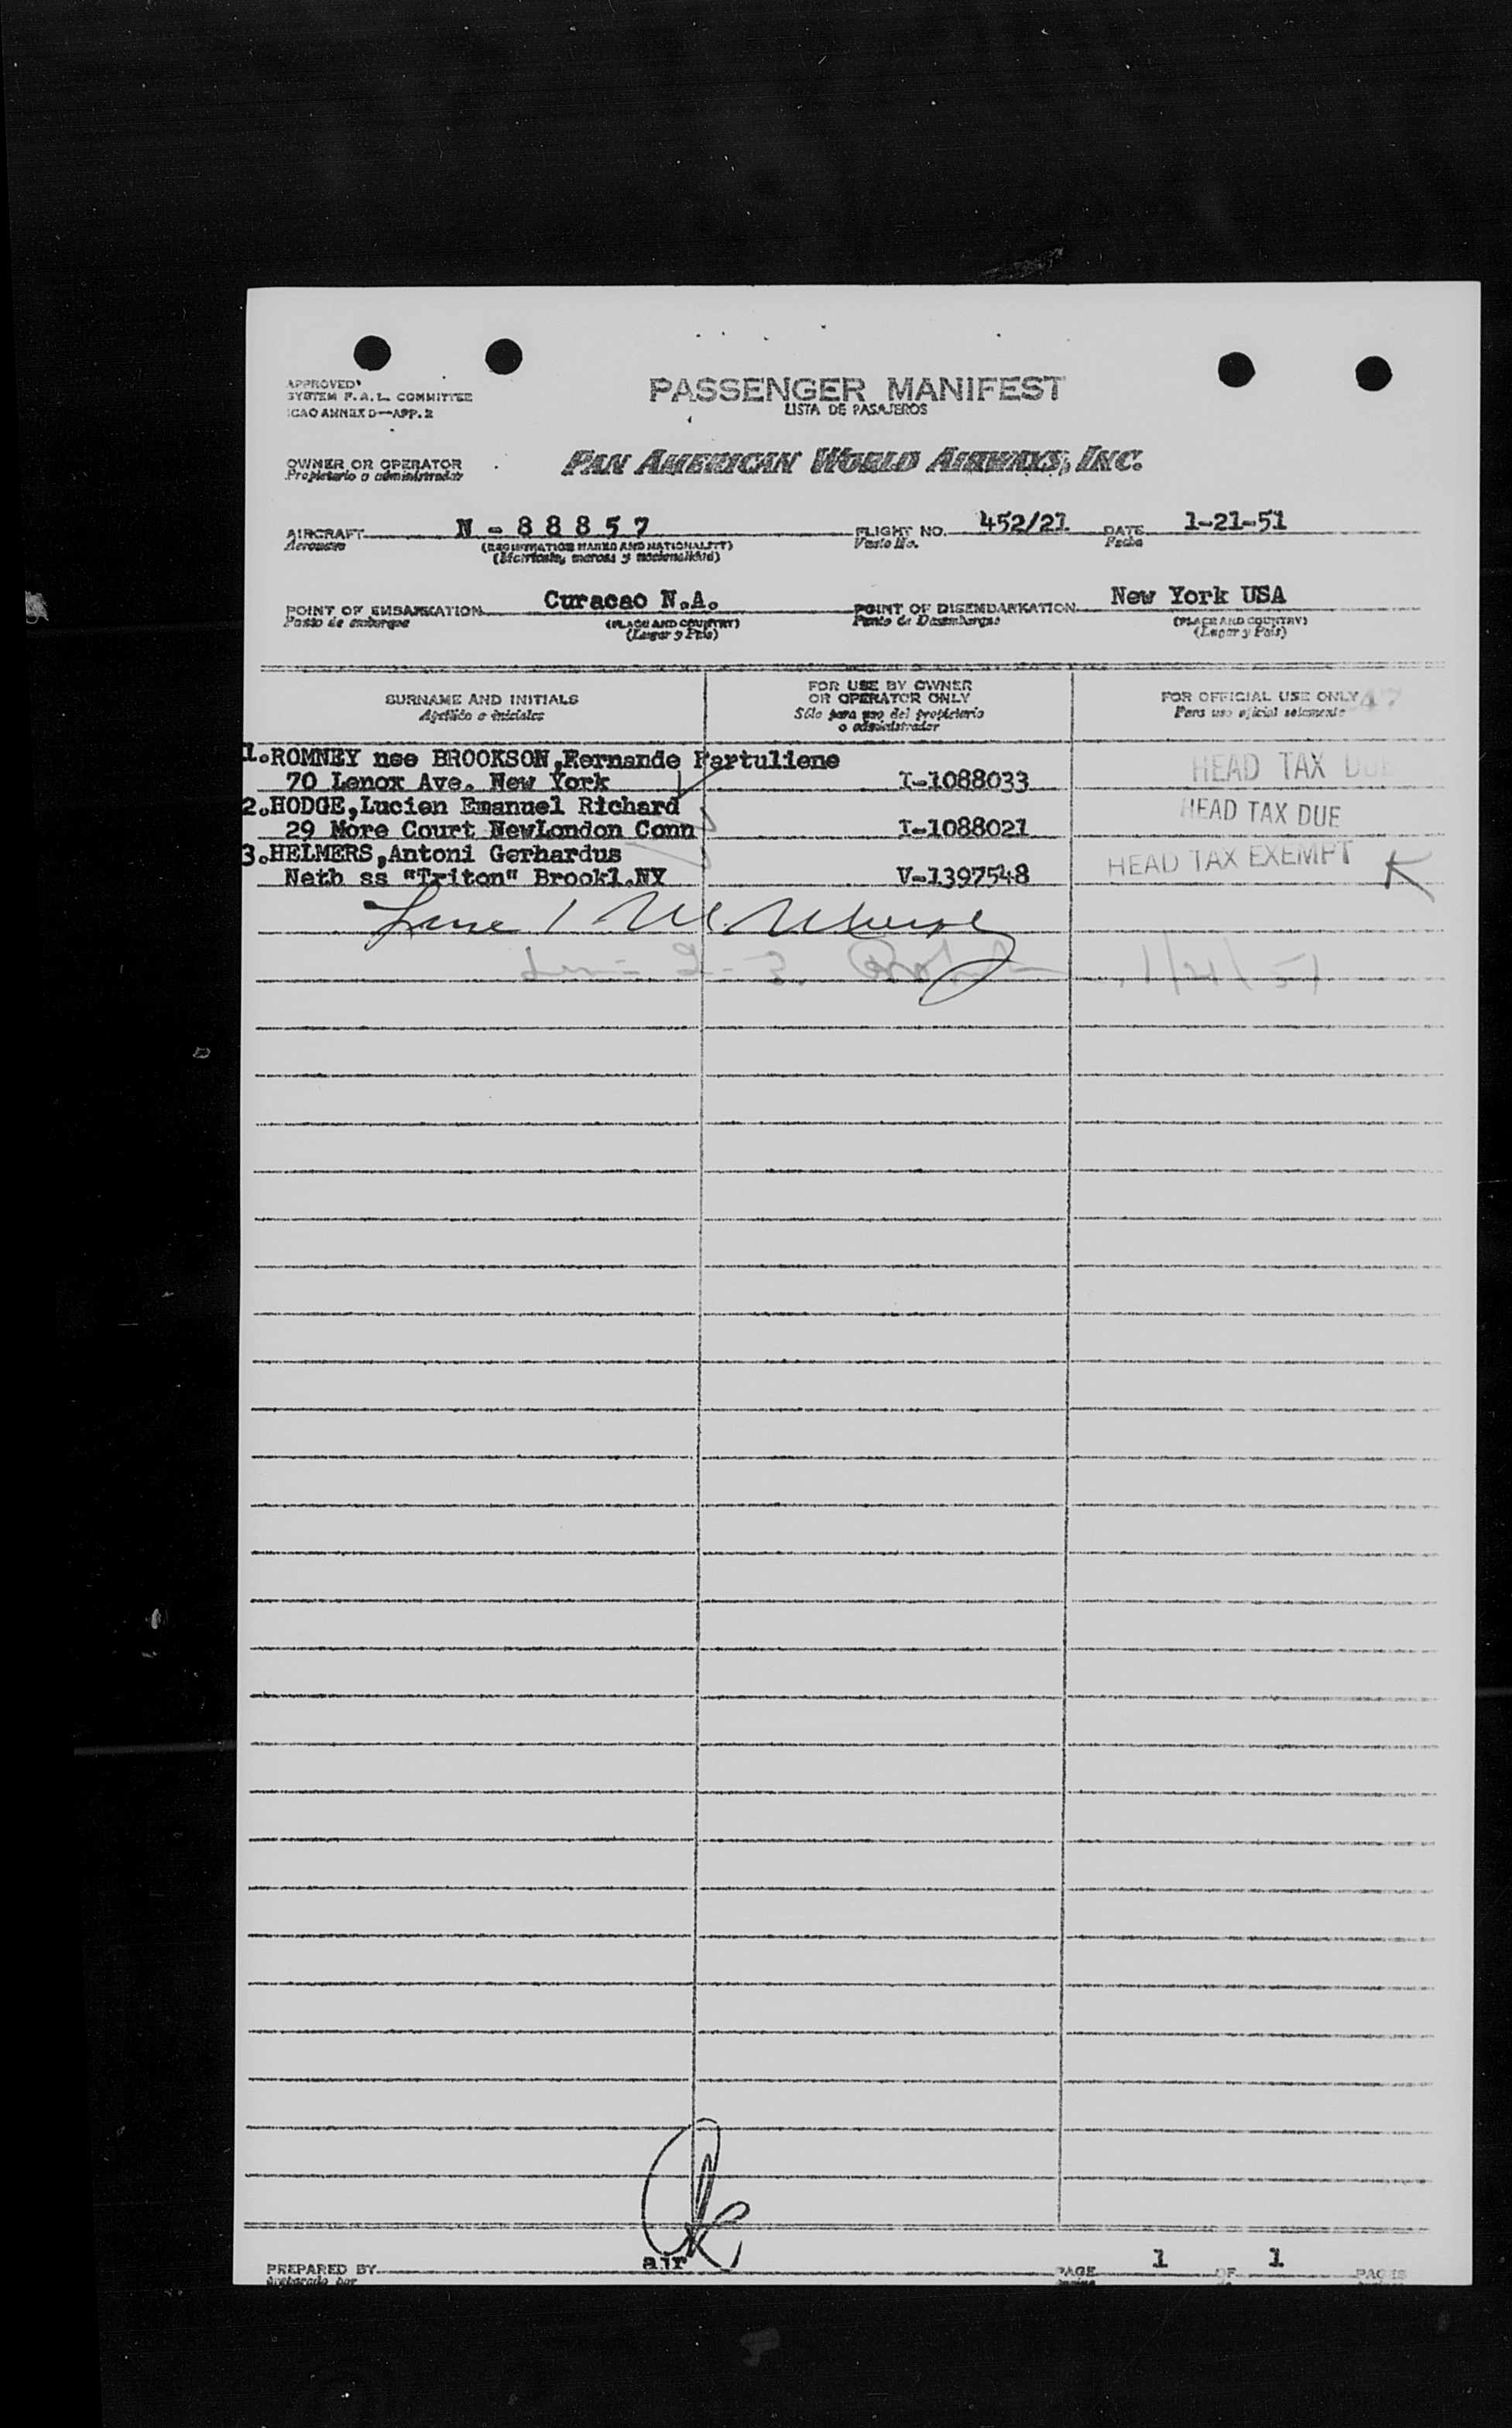 APPROVED
SYSTEM F.A.L. COMMITTEE
ICAO ANNEX D—APP. 2
PASSENGER MANIFEST
LISTA DE PASAJEROS
OWNER OR OPERATOR
Propietario o administrador
PAN AMERICAN WORLD AIRWAYS, INC.
AIRCRAFT N - 8 8 8 5 7 FLIGHT NO. 452/21 DATE 1-21-51
Aeronave (REGISTRATION MARKS AND NATIONALITY) Vuelo No. Fecha
(Matrícula, marcas y nacionalidad)
POINT OF EMBARKATION Curacao N.A. POINT OF DISEMBARKATION New York USA
Punto de embarque (PLACE AND COUNTRY) Punto de Desembarque (PLACE AND COUNTRY)
(Lugar y País) (Lugar y País)
SURNAME AND INITIALS
Apellido e iniciales
FOR USE BY OWNER
OR OPERATOR ONLY
Sólo para uso del propietario
o administrador
FOR OFFICIAL USE ONLY
Para uso oficial solamente
1.ROMNEY nee BROOKSON,Fernande Partuliene HEAD TAX DUE
70 Lenox Ave. New York I-1088033
2.HODGE,Lucien Emanuel Richard HEAD TAX DUE
29 More Court NewLondon Conn I-1088021
3.HELMERS,Antoni Gerhardus HEAD TAX EXEMPT
Neth ss "Triton" Brookl.NY V-1397548
PREPARED BY air PAGE 1 OF 1 PAGES